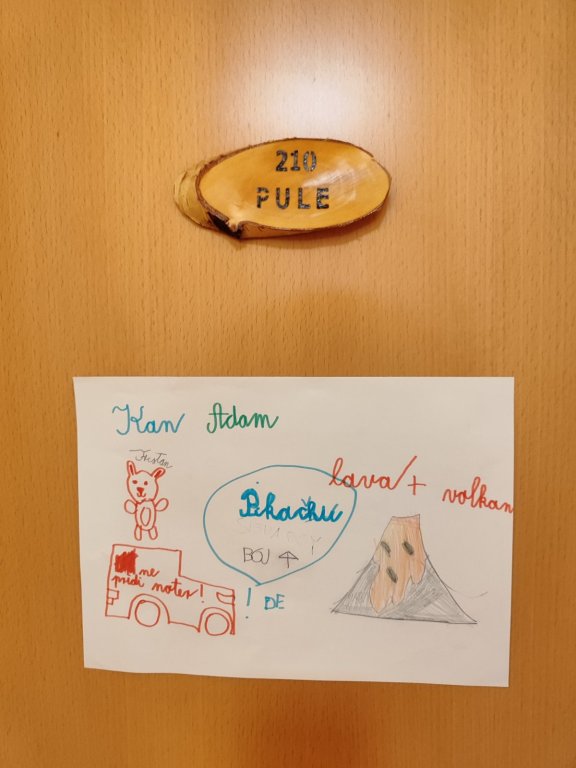 210
PULE
Kan Adam
Tristan
lava + volkan
Pikachu
BOJ
ne
pridi noter!
! DE